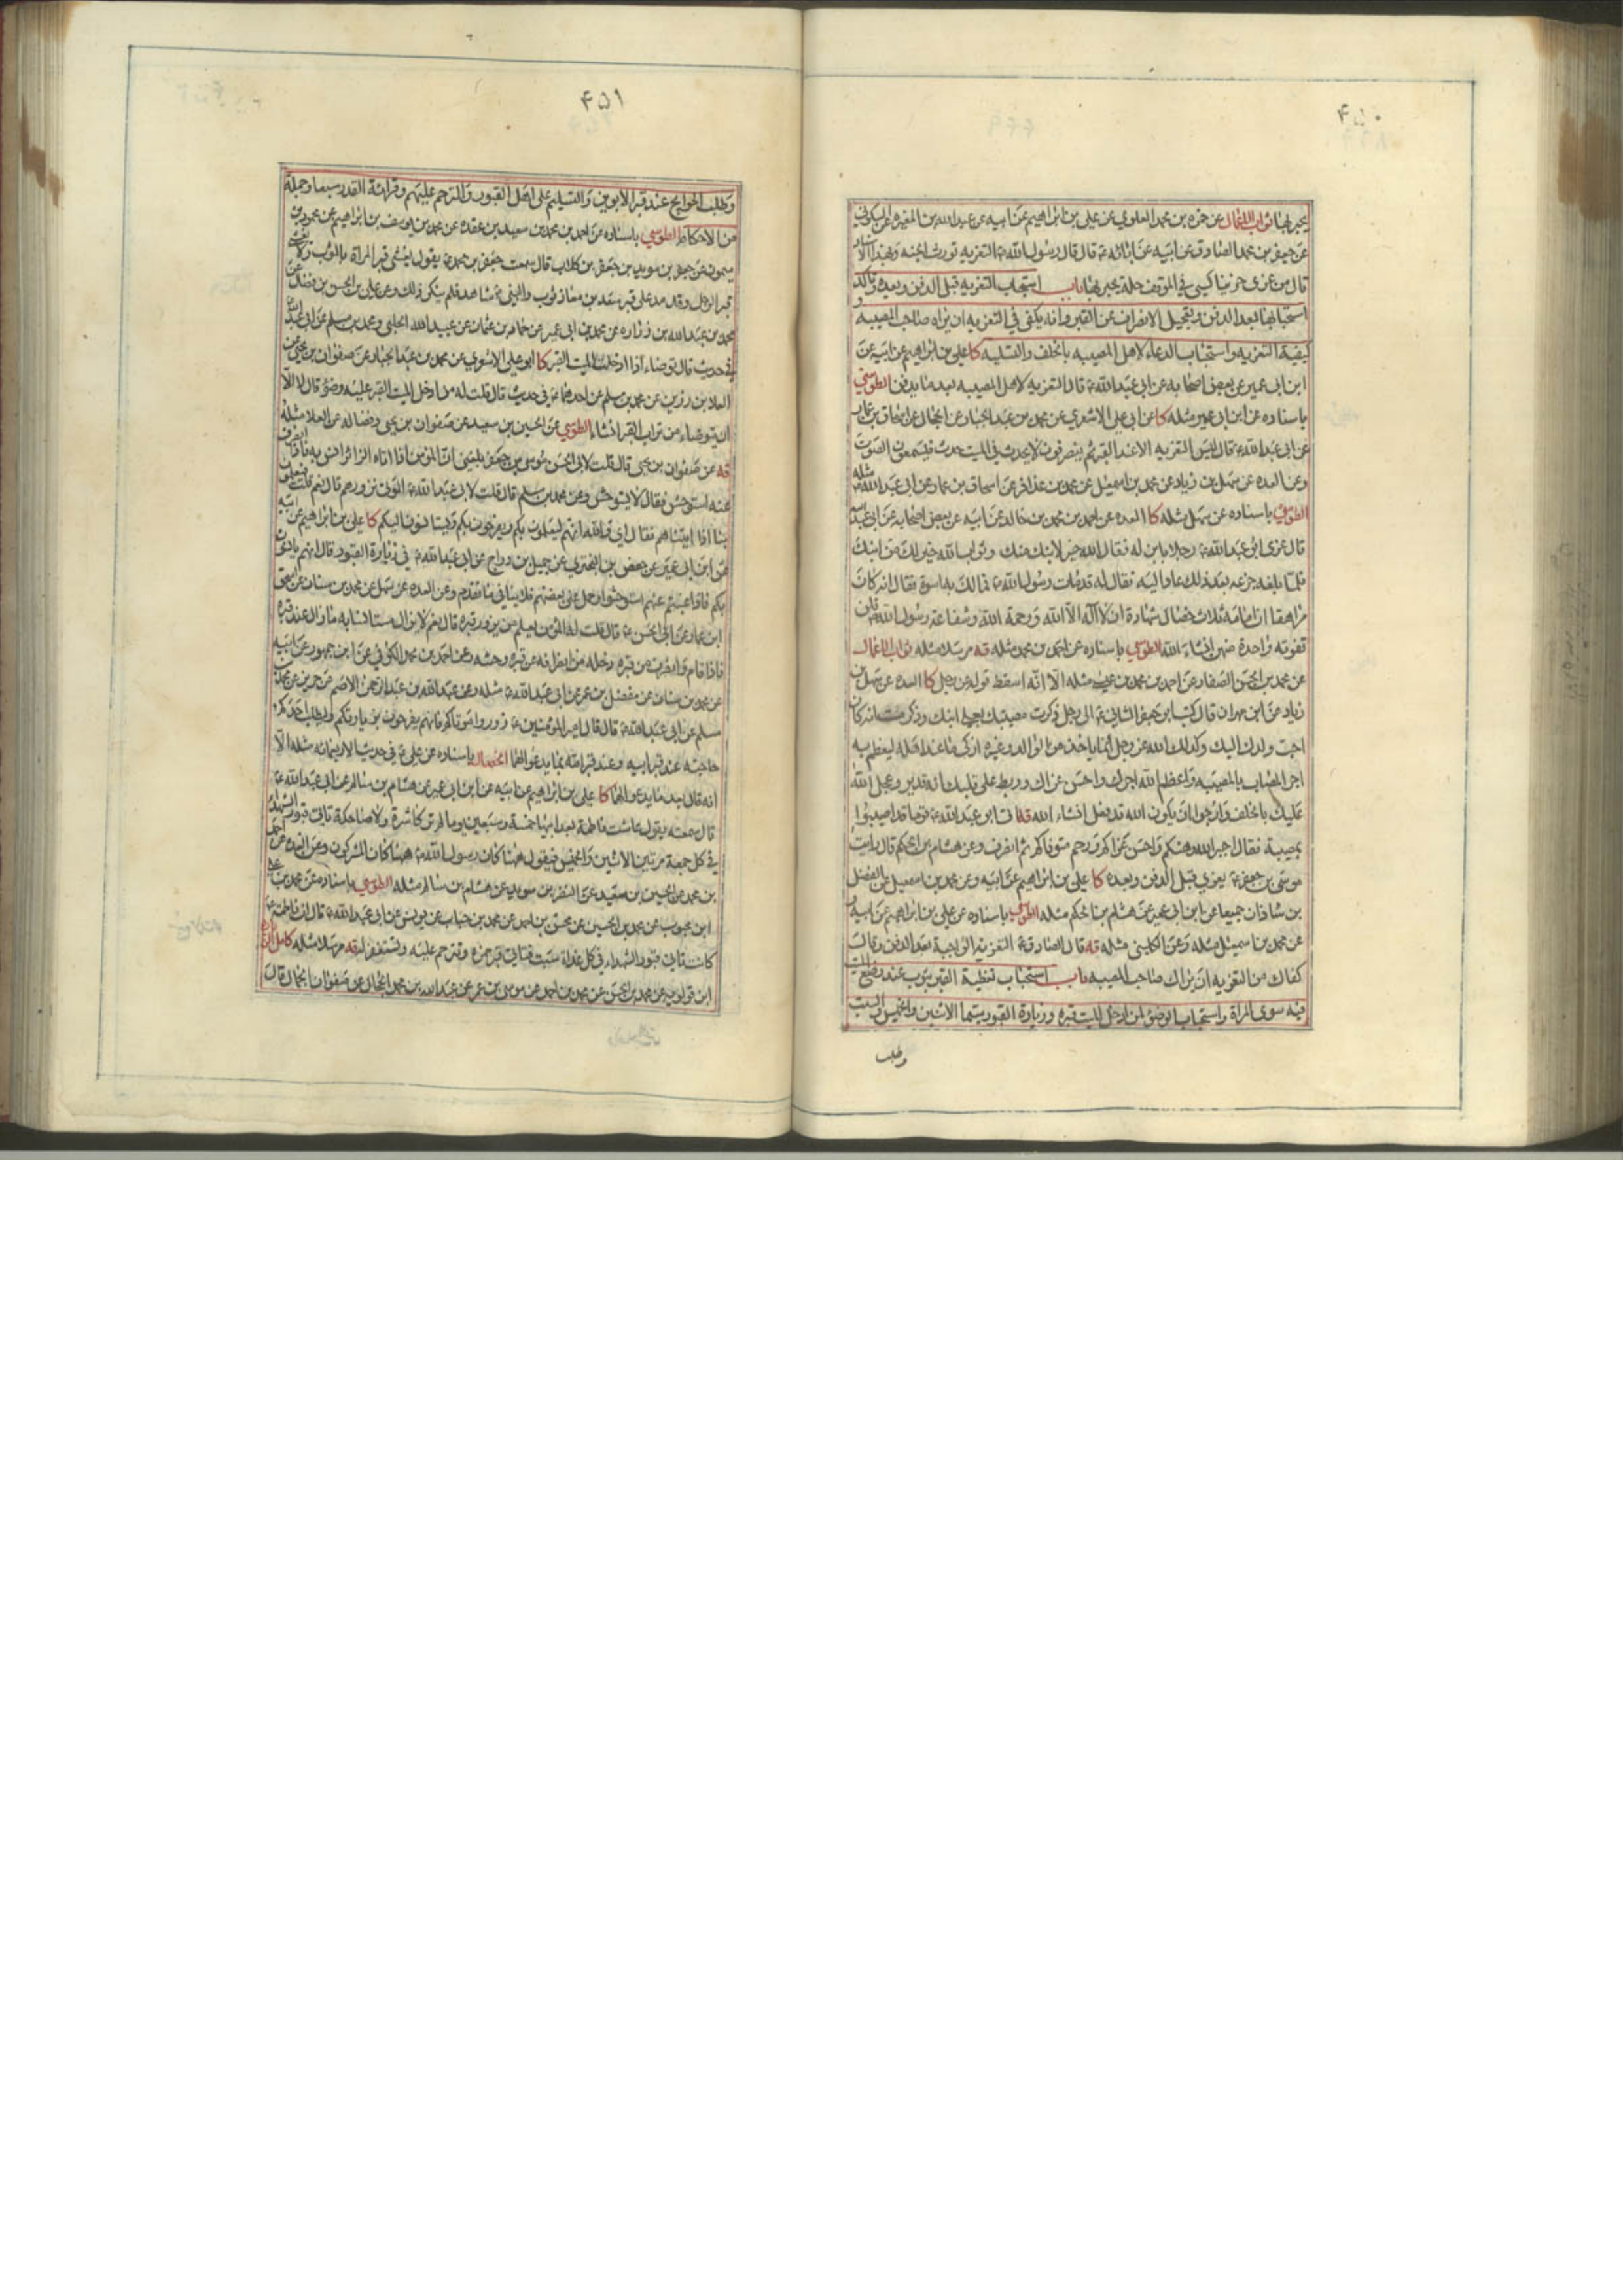 ۴۵۰
يحبر بها ثواب الاعمال عن حمزه بن محمد العلوي عن علي بن ابراهيم عن ابيه عن عبد الله بن المغيره عن السكوني
عن جعفر بن محمد الصادق عن ابيه عن ابائه ع قال قال رسول الله ص التعزيه تورث الجنه وبهذا الاسناد
قال من عزى حزينا كسي في الموقف حلة يحبر بها باب استحباب التعزيه قبل الدفن وبعده وتاكد
استحبابها بعد الدفن وتعجيل الانصراف عن القبر وانه يكفي في التعزيه ان يراه صاحب المصيبه و
كيفية التعزيه واستحباب الدعاء لاهل المصيبه بالخلف والتسليه كا علي بن ابراهيم عن ابيه عن
ابن ابي عمير عن بعض اصحابه عن ابي عبد الله ع قال التعزيه لاهل المصيبه بعد ما يدفن الطوسي
باسناده عن ابن ابي عمير مثله كا عن ابي علي الاشعري عن محمد بن عبد الجبار عن الحجال عن اسحاق بن عمار
عن ابي عبد الله ع قال ليس التعزيه الا عند القبر ثم ينصرفون لا يحدث في الميت حدث فيسمعون الصوت
وعن العده عن سهل بن زياد عن محمد بن اسمعيل عن محمد بن عذافر عن اسحاق بن عمار عن ابي عبد الله ع مثله
الطوسي باسناده عن سهل مثله كا العده عن احمد بن محمد بن خالد عن ابيه عن بعض اصحابه عن ابي عبد الله
قال عزى ابو عبد الله ع رجلا بابن له فقال الله خير لابنك منك وثواب الله خير لك من ابنك
فلما بلغه جزعه بعد ذلك عاد اليه فقال له قد مات رسول الله ص فما لك به اسوة فقال انه كان
مراهقا ان امامه ثلاث خصال شهادة ان لا اله الا الله ورحمة الله وشفاعة رسول الله ص فلن
تفوته واحدة منهن انشاء الله الطوسي باسناده عن احمد بن محمد مثله قه مرسلا مثله ثواب الاعمال
عن محمد بن الحسن الصفار عن احمد بن محمد بن مثله الا انه اسقط قوله عن رجل كا العده عن سهل بن
زياد عن ابن مهران قال كتب ابو جعفر الثاني ع الى رجل ذكرت مصيبتك بعلي ابنك وذكرت انه كان
احب ولدك اليك وكذلك الله عز وجل انما ياخذ من الوالد وغيره ازكى ما عند اهله ليعظم به
اجر المصاب بالمصيبه فاعظم الله اجرك واحسن عزاك وربط على قلبك انه قدير وعجل الله
عليك بالخلف وارجو ان يكون الله قد فعل انشاء الله قه اتى ابو عبد الله ع قوما قد اصيبوا
بمصيبة فقال جبر الله وهنكم واحسن عزاكم ورحم متوفاكم ثم انصرف وعن هشام بن الحكم قال رايت
موسى بن جعفر ع يعزي قبل الدفن وبعده كا علي بن ابراهيم عن ابيه وعن محمد بن اسمعيل عن الفضل
بن شاذان جميعا عن ابن ابي عمير عن هشام بن الحكم مثله الطوسي باسناده عن علي بن ابراهيم عن ابيه و
عن محمد بن اسمعيل مثله وعن الكليني مثله قه قال الصادق ع التعزية الواجبة بعد الدفن وقال
كفاك من التعزيه ان يراك صاحب المصيبه باب استحباب تغطية القبر بثوب عند وضع الميت
فيه سوى المراة واستحباب الوضوء لمن ادخل الميت قبره وزيارة القبور سيما الاثنين والخميس والسبت
وطلب
۴۵۱
وطلب الحوايج عند قبر الابوين والتسليم على اهل القبور والترحم عليهم وقرائة القدر سبعا وجملة
من الاحكام الطوسي باسناده عن احمد بن محمد بن سعيد بن عقده عن محمد بن يوسف بن ابراهيم عن محمد بن
ميمون عن جعفر بن سويد بن جعفر بن كلاب قال سمعت جعفر بن محمد ع يقول يغشى قبر المراة بالثوب ولا يغشى
قبر الرجل وقد مد على قبر سعد بن معاذ ثوب والنبي ص شاهد فلم ينكر ذلك وعن علي بن الحسن بن فضال عن
محمد بن عبد الله بن زراره عن محمد بن ابي عمير عن حماد بن عثمان عن عبيد الله الحلبي ومحمد بن مسلم عن ابي عبد الله
في حديث قال توضاء اذا ادخلت الميت القبر كا ابو علي الاشعري عن محمد بن عبد الجبار عن صفوان بن يحيى عن
العلا بن رزين عن محمد بن مسلم عن احدهما ع في حديث قال قلت له من ادخل الميت القبر عليه وضوء قال لا الا
ان يتوضاء من تراب القبر انشاء الطوسي عن الحسين بن سعيد عن صفوان بن يحيى وفضاله عن العلا مثله
قه عن صفوان بن يحيى قال قلت لابي الحسن موسى بن جعفر بلغني ان المؤمن اذا اتاه الزائر انس به فاذا انصرف
عنه استوحش فقال لا يستوحش وعن محمد بن مسلم قال قلت لابي عبد الله ع الموتى نزورهم قال نعم قلت فيعلمون
بنا اذا اتيناهم فقال اي والله انهم ليعلمون بكم ويفرحون بكم ويستانسون اليكم كا علي بن ابراهيم عن ابيه
عن ابن ابي عمير عن حفص بن البختري عن جميل بن دراج عن ابي عبد الله ع في زيارة القبور قال انهم يانسون
بكم فاذا غبتم عنهم استوحشوا حمل على بعضهم فلا ينافي ما تقدم وعن العده عن سهل عن محمد بن سنان عن اسحق
ابن عمار عن ابي الحسن ع قال قلت له المؤمن يعلم من يزور قبره قال نعم لا يزال مستانسا به ما زال عند قبره
فاذا قام وانصرف من قبره دخله من انصرافه عن قبره وحشه وعن احمد بن محمد الكوفي عن ابن جمهور عن ابيه
عن محمد بن سنان عن مفضل بن عمر عن ابي عبد الله ع مثله وعن عبد الله بن عبد الرحمن الاصم عن حريز عن محمد بن
مسلم عن ابي عبد الله ع قال قال امير المؤمنين ع زوروا موتاكم فانهم يفرحون بزيارتكم وليطلب احدكم
حاجته عند قبر ابيه وعند قبر امه بما يدعو لهما الخصال باسناده عن علي ع في حديث الاربعمائه مثله الا
انه قال بعد ما يدعو لهما كا علي بن ابراهيم عن ابيه عن ابن ابي عمير عن هشام بن سالم عن ابي عبد الله ع
قال سمعته يقول عاشت فاطمة بعد ابيها خمسة وسبعين يوما لم تر كاشرة ولا ضاحكة تاتي قبور الشهداء
في كل جمعة مرتين الاثنين والخميس فيقول ههنا كان رسول الله ص ههنا كان المشركون وعن العده عن احمد
بن محمد عن الحسين بن سعيد عن النضر بن سويد عن هشام بن سالم مثله الطوسي باسناده عن محمد بن علي
ابن محبوب عن محمد بن الحسين عن محسن بن احمد عن محمد بن حباب عن يونس عن ابي عبد الله ع قال ان فاطمة ع
كانت تاتي قبور الشهداء في كل غداة سبت فتاتي قبر حمزة وتترحم عليه وتستغفر له قه مرسلا مثله كامل الزيارة
ابن قولويه عن محمد بن الحسن عن محمد بن احمد عن موسى بن عمر عن عبد الله بن محمد الحجال عن صفوان الجمال قال